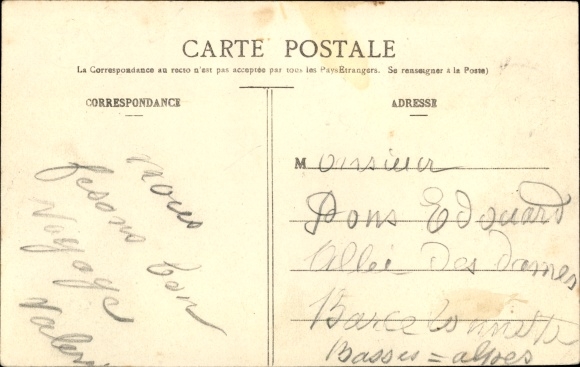 CARTE POSTALE
(La Correspondance au recto n'est pas acceptée par tous les Pays Etrangers. Se renseigner à la Poste)
CORRESPONDANCE
ADRESSE
nous
fesons bon
Voyage
Monsieur
Pons Edouard
Allée Des Dames
Barcelonnette
Basses=alpes